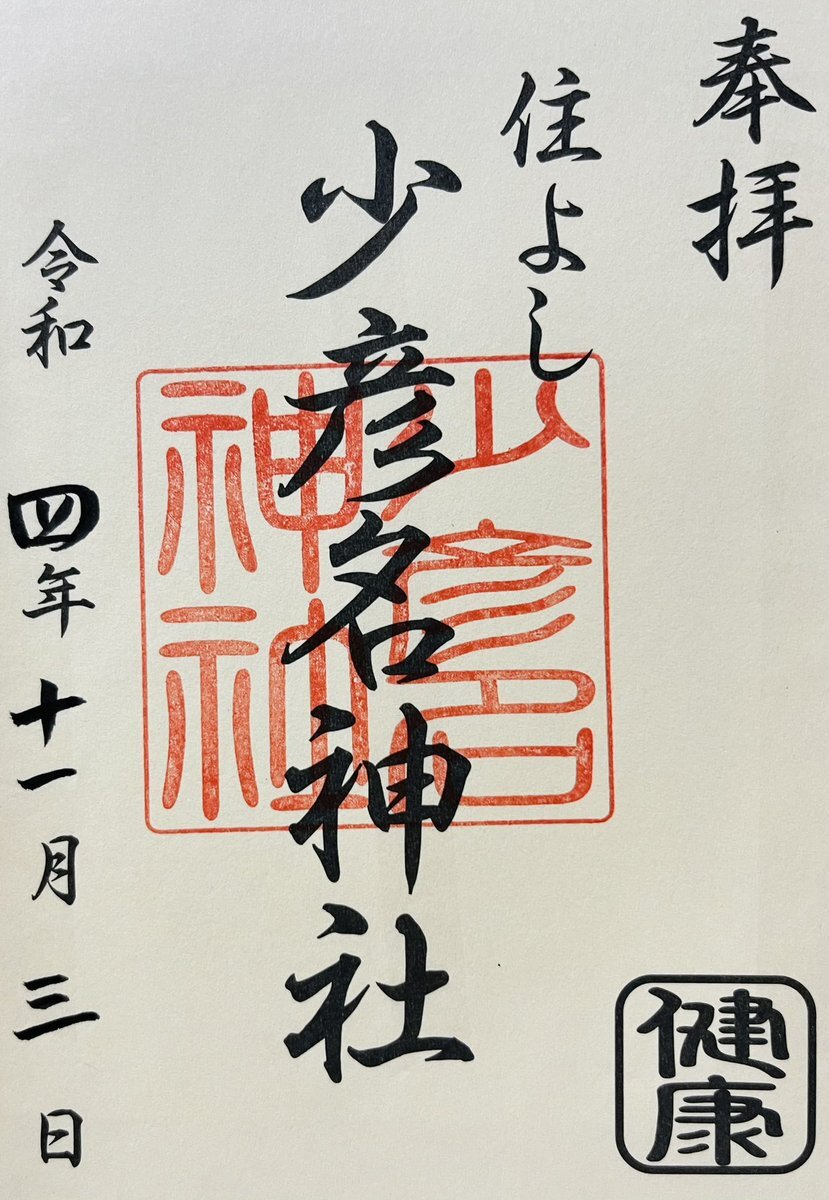 奉拝
住よし
少彦名神社
少彦名
神社
令和四年十一月三日
健康